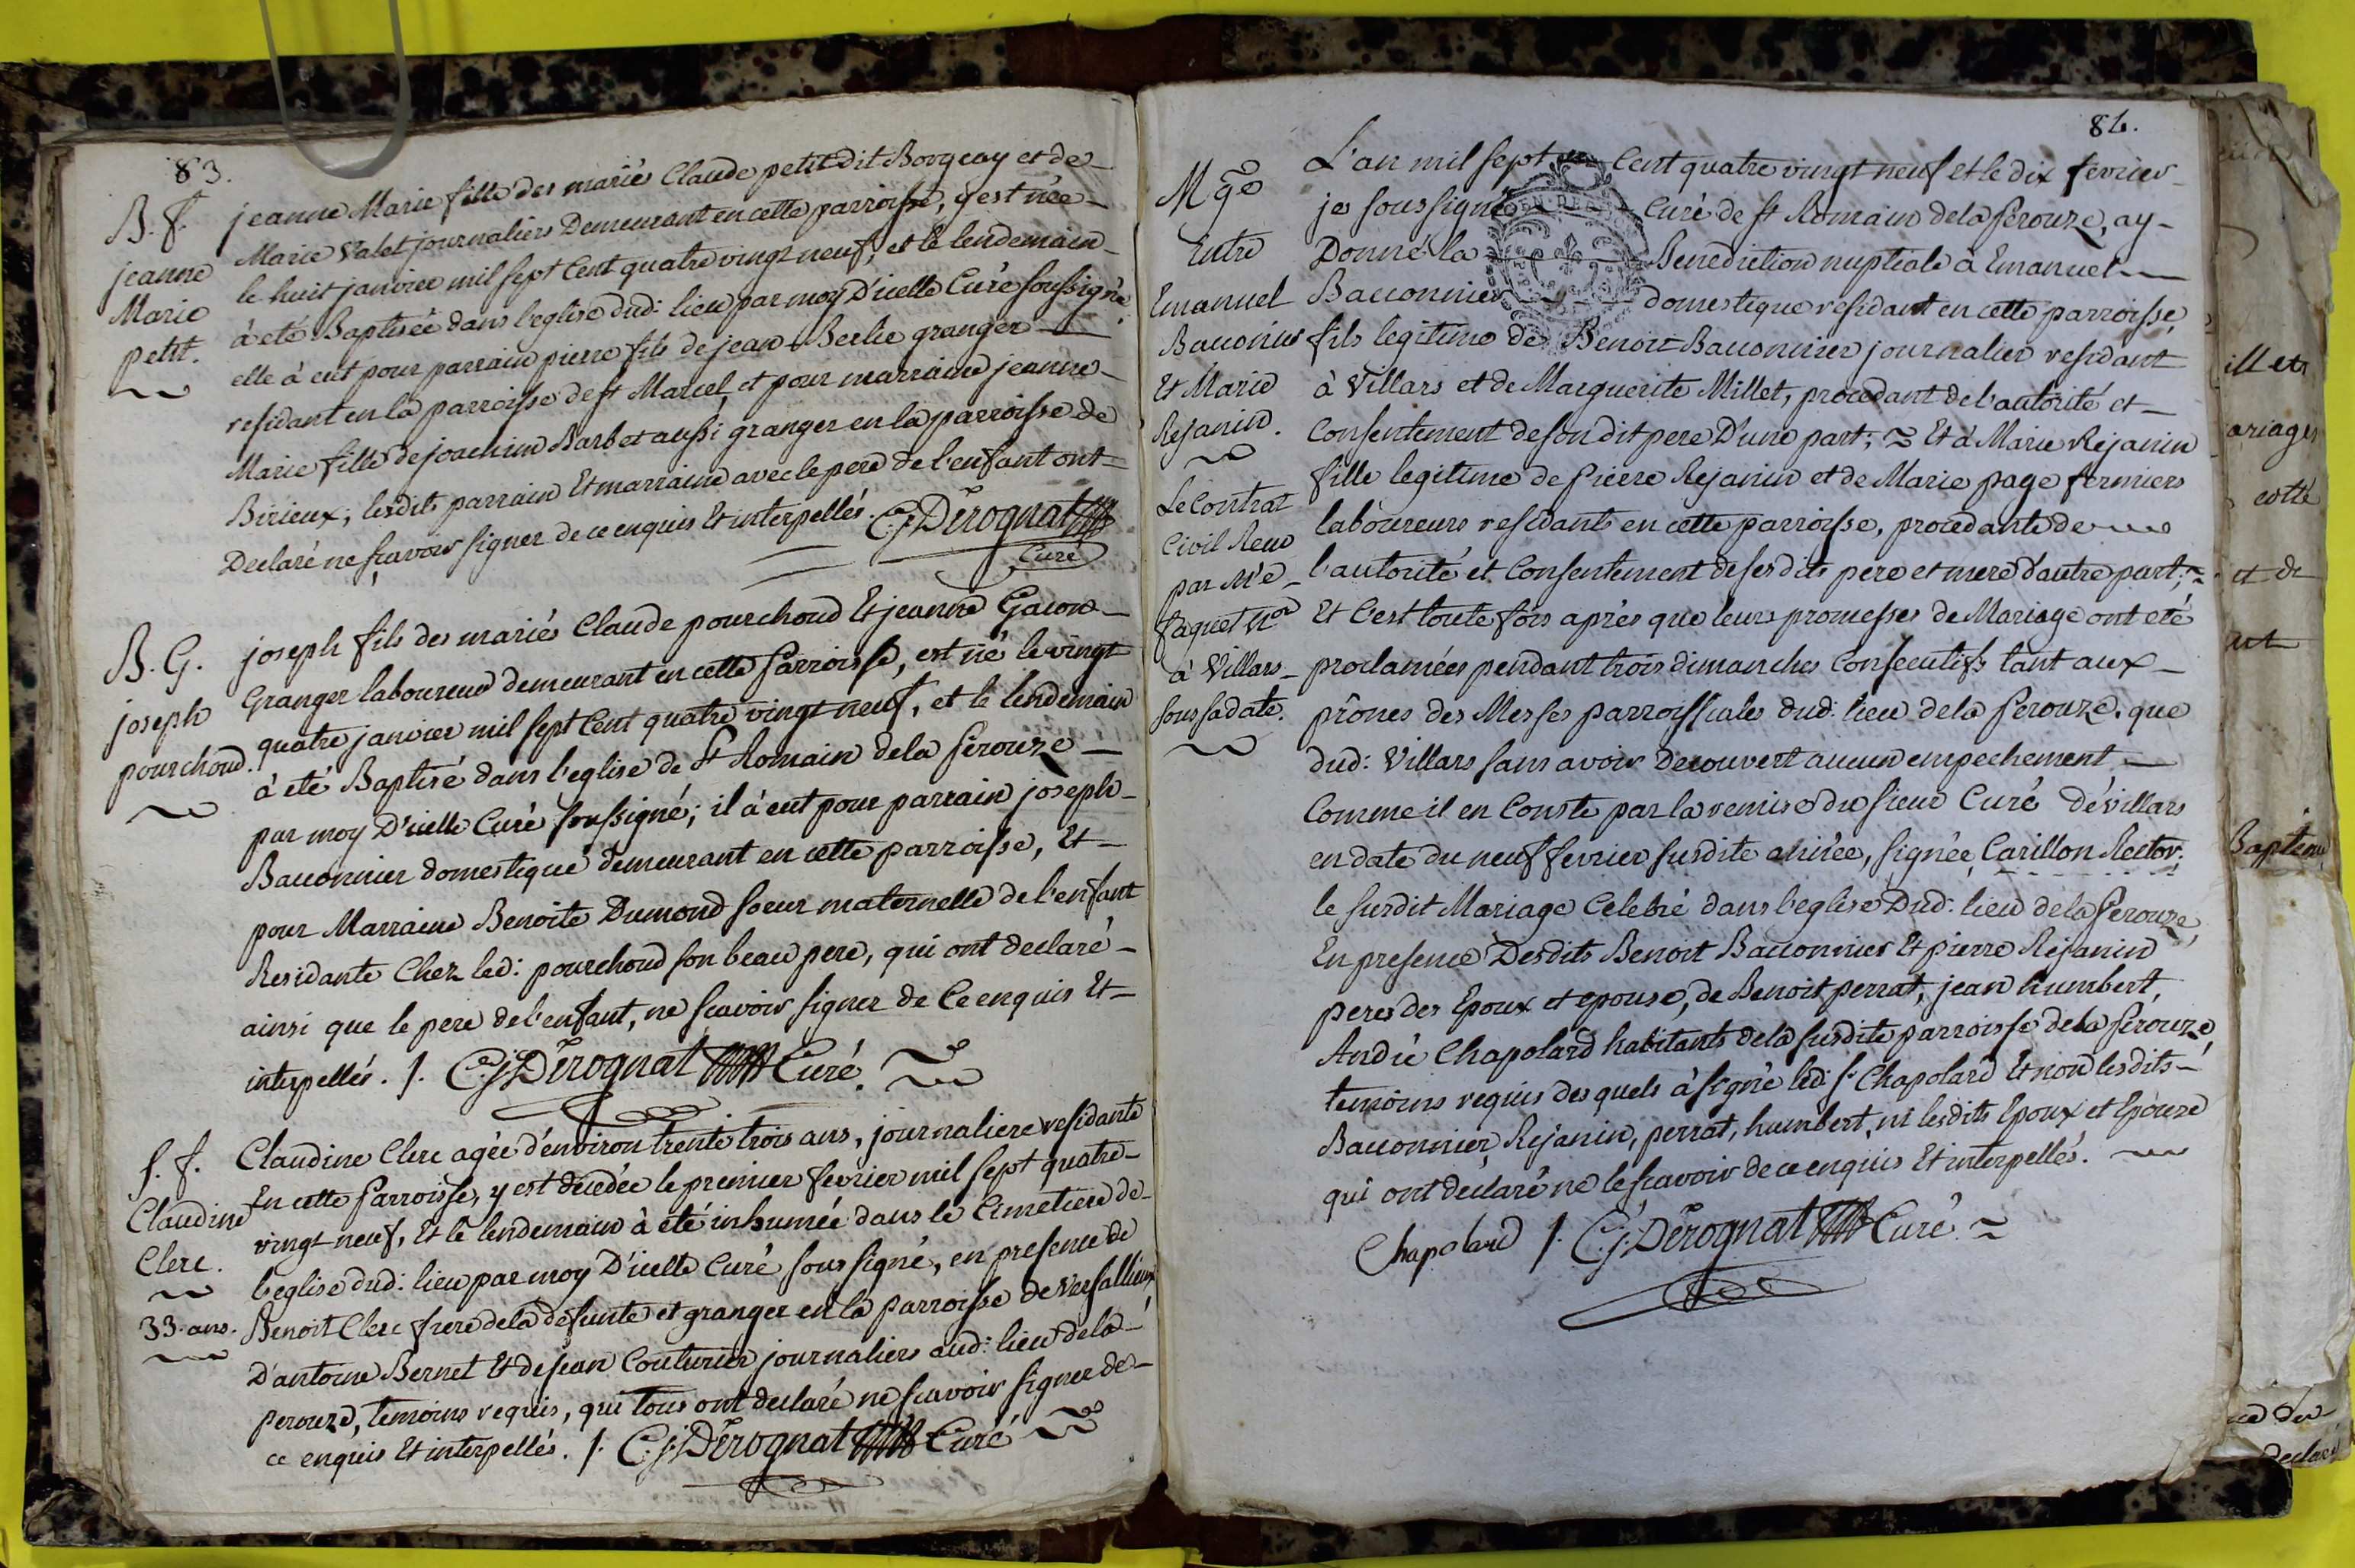 83.
B. f.
jeanne
Marie
petit.
jeanne Marie fille des mariés Claude petit dit Borgeay et de
Marie Valet journaliers Demeurant en cette parroisse, y est née
le huit janvier mil sept Cent quatre vingt neuf, et le lendemain
à eté Baptisée dans l'eglise dud: lieu par moy D'icelle Curé soussigné.
elle à eut pour parrain pierre fils de jean Berlie granger
residant en la parroisse de st Marcel, et pour marraine jeanne
Marie fille de joachim Barbet aussi granger en la parroisse de
Birieux; lesdits parrain Et marraine avec le pere de l'enfant ont
Declaré ne scavoir signer de ce enquis Et interpellés. C. j. Dérognat
Curé
B. G.
joseph
pourchoud.
joseph fils des mariés Claude pourchoud Et jeanne Gacon
Granger laboureur demeurant en cette Parroisse, est né le vingt
quatre janvier mil sept Cent quatre vingt neuf, et le lendemain
à eté Baptisé dans l'eglise de St Romain de la Pérouze
par moy D'icelle Curé soussigné; il à eut pour parrain joseph
Bauonnier domestique demeurant en cette parroisse, Et
pour Marraine Benoite Dumond soeur maternelle de l'enfant
Residante Chez led: pourchoud son beau pere, qui ont declaré
ainsi que le pere de l'enfant, ne scavoir signer de Ce enquis Et
interpellés. /. C. j. Dérognat Curé.
s. f.
Claudine
Clerc.
33. ans.
Claudine Clerc agée d'environ trente trois ans, journaliere residante
En cette Parroisse, y est décedée le premier fevrier mil sept quatre
vingt neuf, Et le lendemain à eté inhumée dans le Cimetiere de
l'eglise dud: lieu par moy D'icelle Curé sous signé, en presence de
Benoit Clerc frere de la defunte et granger en la parroisse de Versallieux
D'antoine Bernet Et de jean Couturier journaliers aud: lieu de la
perouze, temoins requis, qui tous ont declaré ne scavoir signer de
ce enquis Et interpellés. /. C. j. Dérognat Curé
84.
Mge
Entre
Emanuel
Bauonier
Et Marie
Rejanin.
Le Contrat
Civil Recu
par Me
faquet Nre
à Villars
sous sa date.
L'an mil sept Cent quatre vingt neuf et le dix fevrier
je sous signé Curé de st Romain de la Pérouze, ay
Donné la Benediction nuptiale à Emanuel
Bauonnier domestique residant en cette parroisse
fils legitime de Benoit Bauonnier journalier residant
à Villars et de Marguerite Millet, procedant de l'autorité et
Consentement de son dit pere D'une part; Et à Marie Rejanin
fille legitime de Pierre Rejanin et de Marie page fermiers
laboureurs residants en cette parroisse, procedante de
l'autorité et Consentement de ses dits pere et mere d'autre part;
Et C'est toute fois après que leurs promesses de Mariage ont eté
proclamées pendant trois dimanches Consecutifs tant aux
prônes des Messes parroissiales dud: lieu de la Perouze, que
dud: Villars sans avoir Decouvert aucun empechement
Comme il en Conste par la remise du sieur Curé de Villars
en date du neuf fevrier susdite année, signée, Carillon Rector:
le susdit Mariage Celebré dans l'eglise Dud: lieu de la Perouze
En presence Desdits Benoit Bauonnier Et pierre Rejanin
peres des Epoux et epouse, de Benoit perrat, jean humbert,
André Chapolard habitants de la susdite parroisse de la Perouze,
temoins requis des quels à signé led: sr Chapolard Et non lesdits
Bauonnier, Rejanin, perrat, humbert, ni lesdits Epoux et Epouze
qui ont declaré ne le scavoir de ce enquis Et interpellés.
Chapolard /. C. j. Dérognat Curé
ill et
ariages
cotté
et de
Baptem